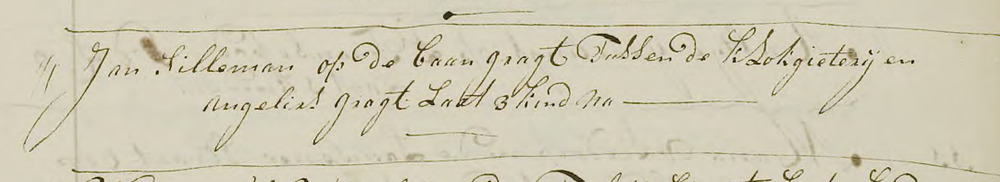 Jan Silleman op de baan gragt Tussen de Klokgieterij en
angeliers gragt Laat 3 kind na